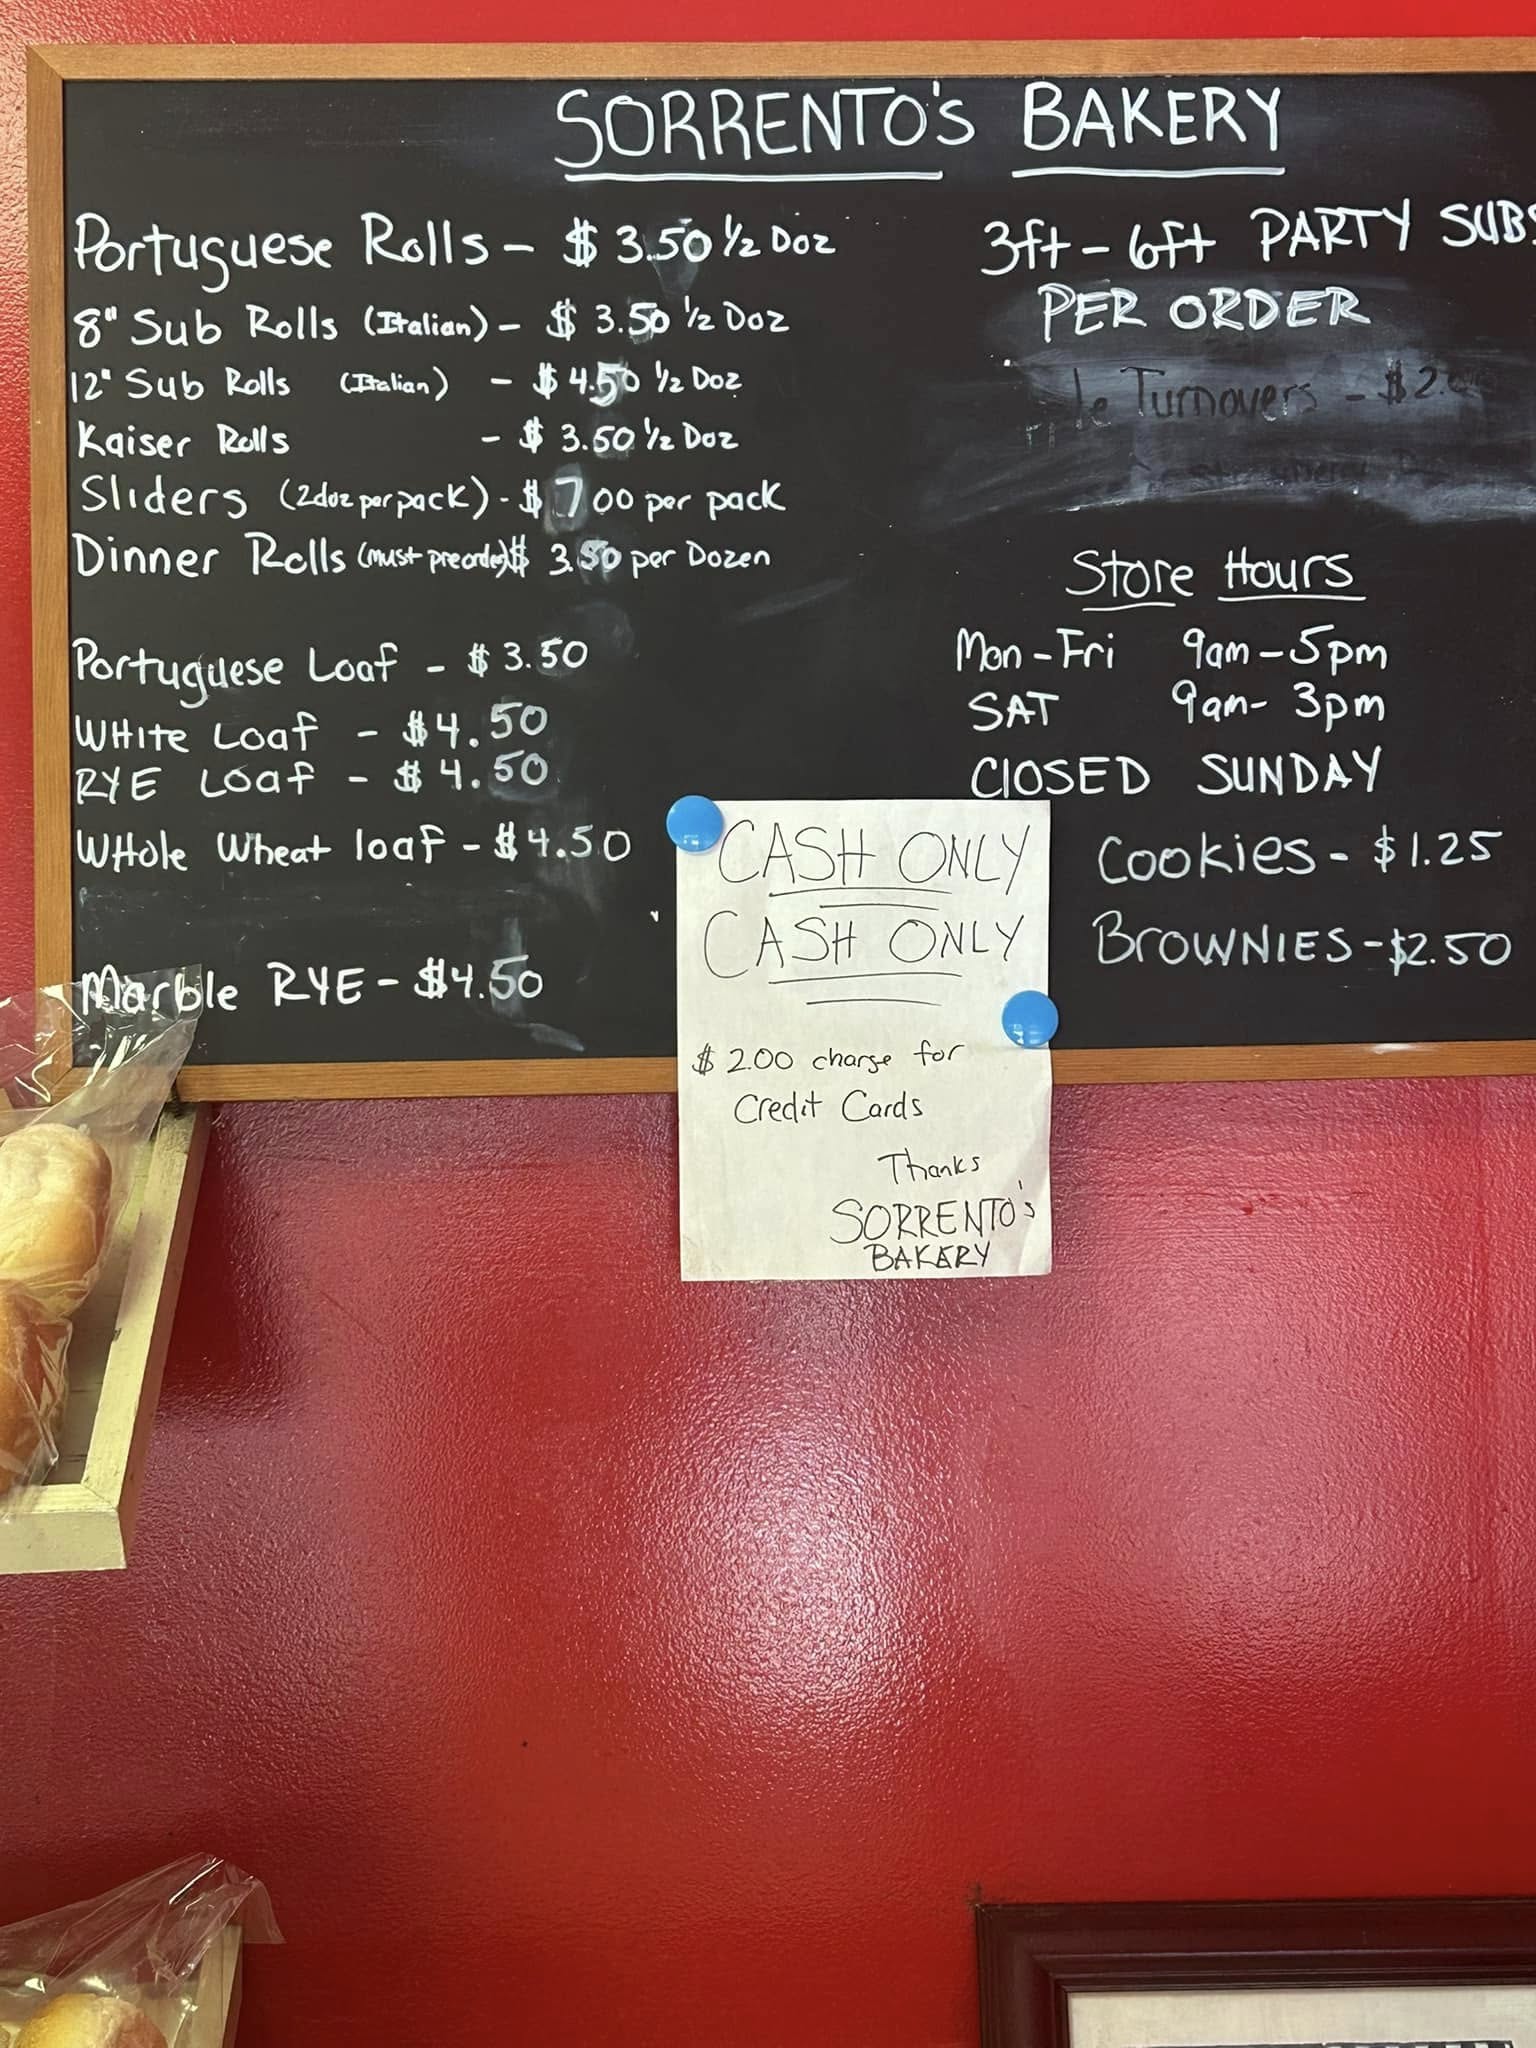 SORRENTO'S BAKERY
Portuguese Rolls - $ 3.50 1/2 Doz
8" Sub Rolls (Italian) - $ 3.50 1/2 Doz
12" Sub Rolls (Italian) - $ 4.50 1/2 Doz
Kaiser Rolls - $ 3.50 1/2 Doz
Sliders (2doz per pack) - $ 7 00 per pack
Dinner Rolls (must preorder) $ 3.50 per Dozen
Portuguese Loaf - $ 3.50
WHITE LOAF - $4.50
RYE LOAF - $ 4.50
WHole Wheat loaf - $4.50
Marble RYE - $4.50
3ft - 6ft PARTY SUBS
PER ORDER
Turnovers - $2.
Store Hours
Mon - Fri 9am - 5pm
SAT 9am - 3pm
ClOSED SUNDAY
Cookies - $1.25
BROWNIES - $2.50
CASH ONLY
CASH ONLY
$ 2.00 charge for
Credit Cards
Thanks
SORRENTO's
BAKERY